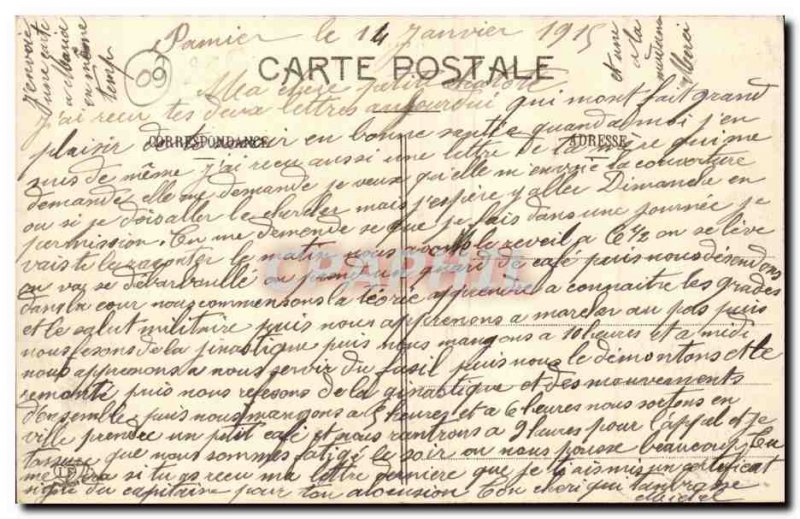 Pamier le 14 Janvier 1915
CARTE POSTALE
09
Ma chère petite
j'ai recu tes deux lettres aujourdui qui mont fait grand
CORRESPONDANCE
ADRESSE
plaisir de te savoir en bonne santée quand a moi j'en
suis de même j'ai recu aussi une lettre de ta mère qui me
demande elle me demande je veux qu'elle m'envoie la couverture
ou si je dois aller le chercher mais j'espère y aller Dimanche en
permission. Tu me demende se que je fais dans une journée je
vais te le raconter le matin nous avons le reveil a 6 ½ on se lève
on vas se débarbouillé on prend un quard de café puis nous désendons
dans la cour nous commensons la téorie apprendre a connaitre les grades
et le salut militaire puis nous apprenons a marcher au pas puis
nous fesons de la jinastique puis nous mangons a 10 heures et a midi
nous apprenons a nous servir du fusil puis nous le démontons et le
remonté puis nous refesons de la ginastique et des mouvements
d'ensemble puis nous mangons a 5 heures et a 6 heures nous sortons en
ville prendre un petit café et nous rantrons a 9 heures pour l'appel et je
tassure que nous sommes fatigé le soir on nous pousse beaucoup tu
me dira si tu as recu ma lettre dernière que je taismis un certificat
signé du capitaine pour ton alocusion Ton cheri qui tambrasse
J'envoie
une carte
a Maria
en même
temps
et une
a la
Merci
CPAPHIL